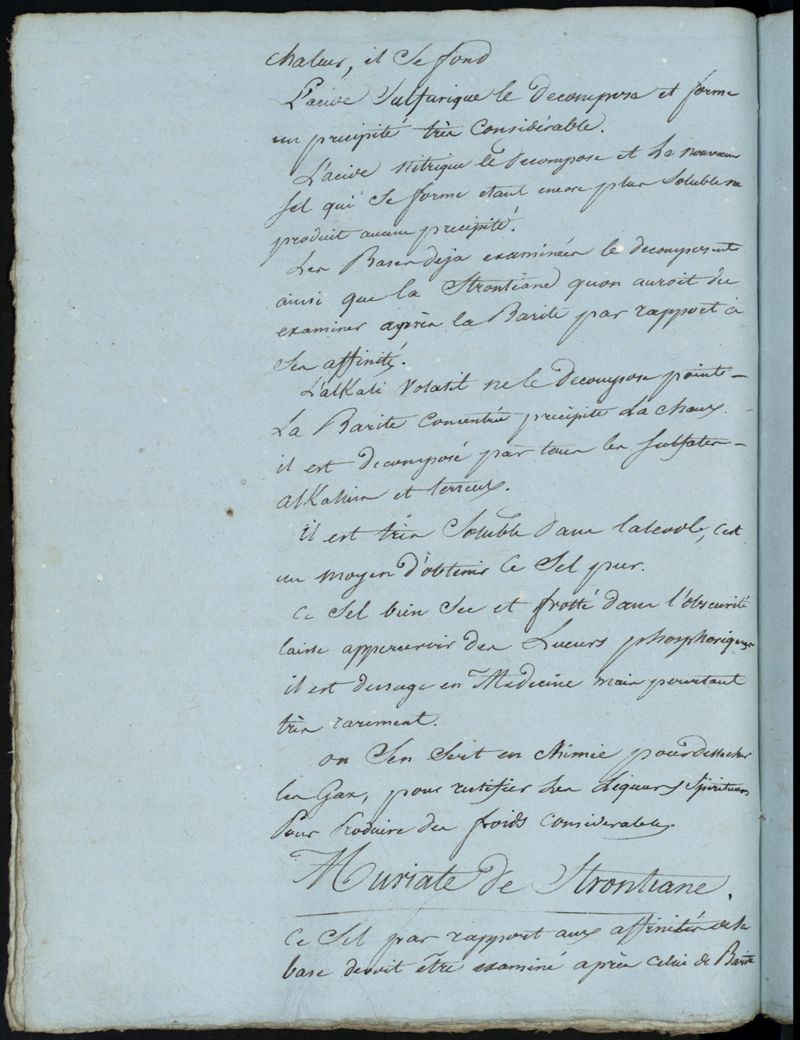 chaleur, il se fond
L'acide Sulfurique le decompose et forme
un precipité très considérable.
L'acide Nitrique le decompose et le nouveau
sel qui se forme etant encore plus soluble ne
produit aucun precipité.
Les Bases deja examinées le decomposent
ainsi que la Strontiane quon auroit du
examiner après la Barite par rapport à
ses affinités.
L'alKali Volatil ne le decompose point –
La Barite Concentrée precipite La chaux.
il est decomposé par tous les sulfates –
alKalins et terreux.
il est très Soluble dans lalcool, cest
un moyen d'obtenir Ce Sel pur.
Ce Sel bien Sec et frotté dans l'obscurité
laisse appercevoir des Lueurs phosphoriques
il est dusage en Medecine mais pourtant
très rarement.
on Sen Sert en Chimie pour dessecher
les Gaz, pour rectifier Les Liqueurs Spiritueuses
Pour Produire des froids considerables.
Muriate de Strontiane.
Ce Sel par rapport aux affinités de sa
base devoit être examiné après Celui de Barite